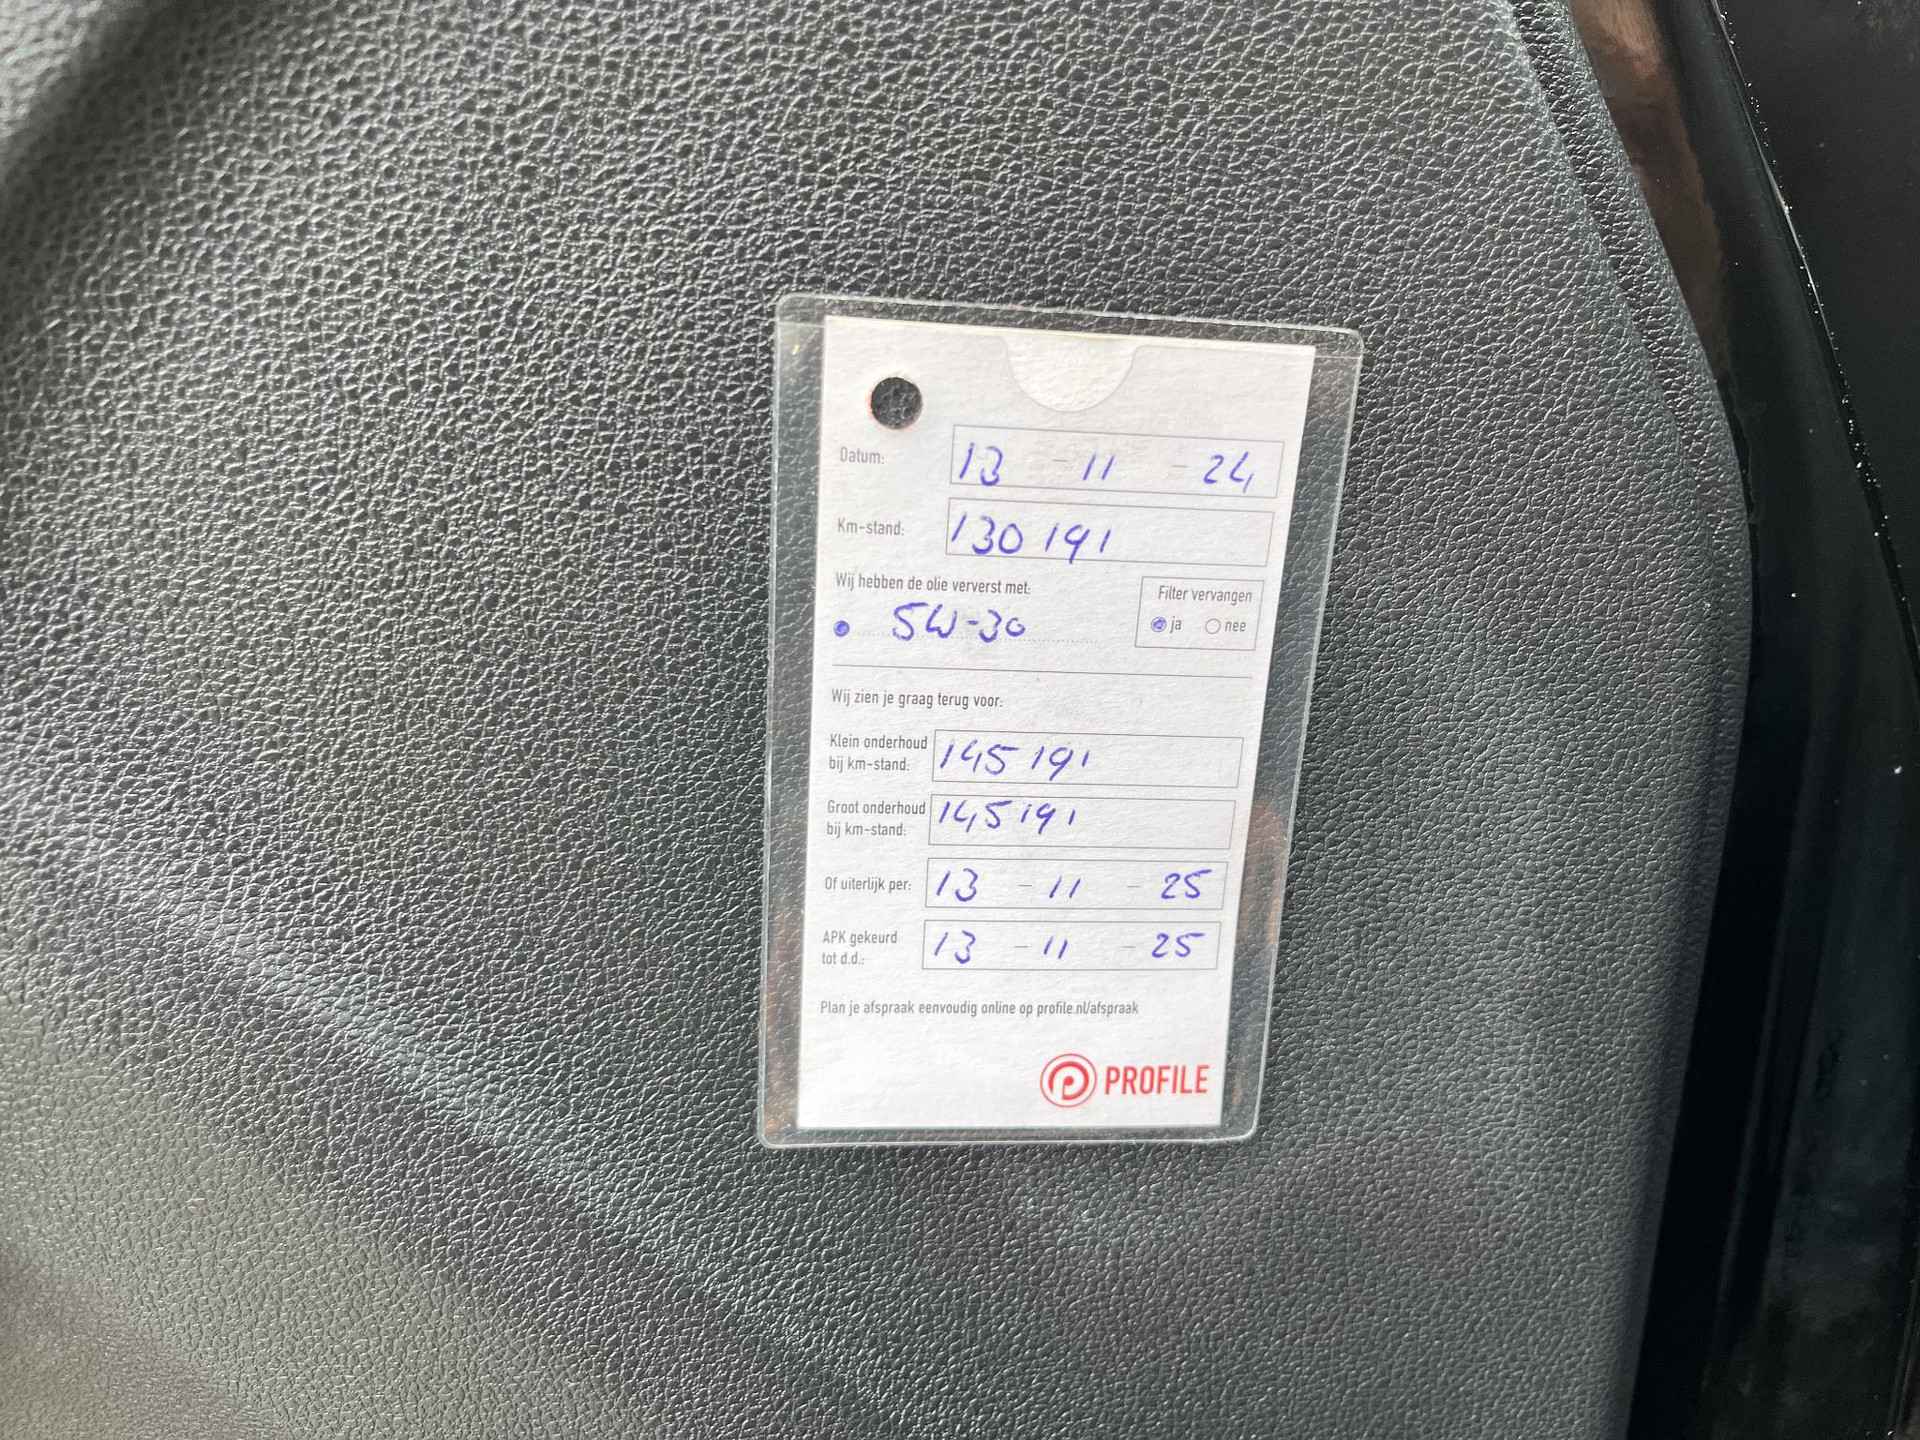 Datum: 13 - 11 - 24
Km-stand: 130 191
Wij hebben de olie ververst met:
5W-30
Filter vervangen
ja nee
Wij zien je graag terug voor:
Klein onderhoud
bij km-stand: 145 191
Groot onderhoud
bij km-stand: 145 191
Of uiterlijk per: 13 - 11 - 25
APK gekeurd
tot d.d.: 13 - 11 - 25
Plan je afspraak eenvoudig online op profile.nl/afspraak
PROFILE